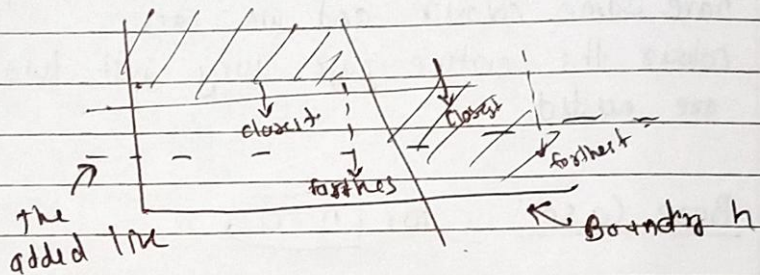 closest
closest
farthest
farthes
the
added line
Boundary h